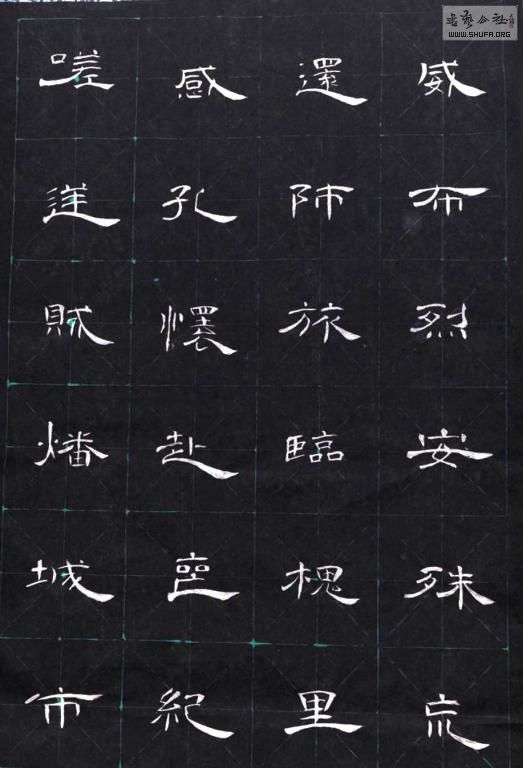 威布烈安殊巟
還師旅臨槐里
感孔懷赴喪紀
嗟逆賊燔城市
書藝公社
WWW.SHUFA.ORG